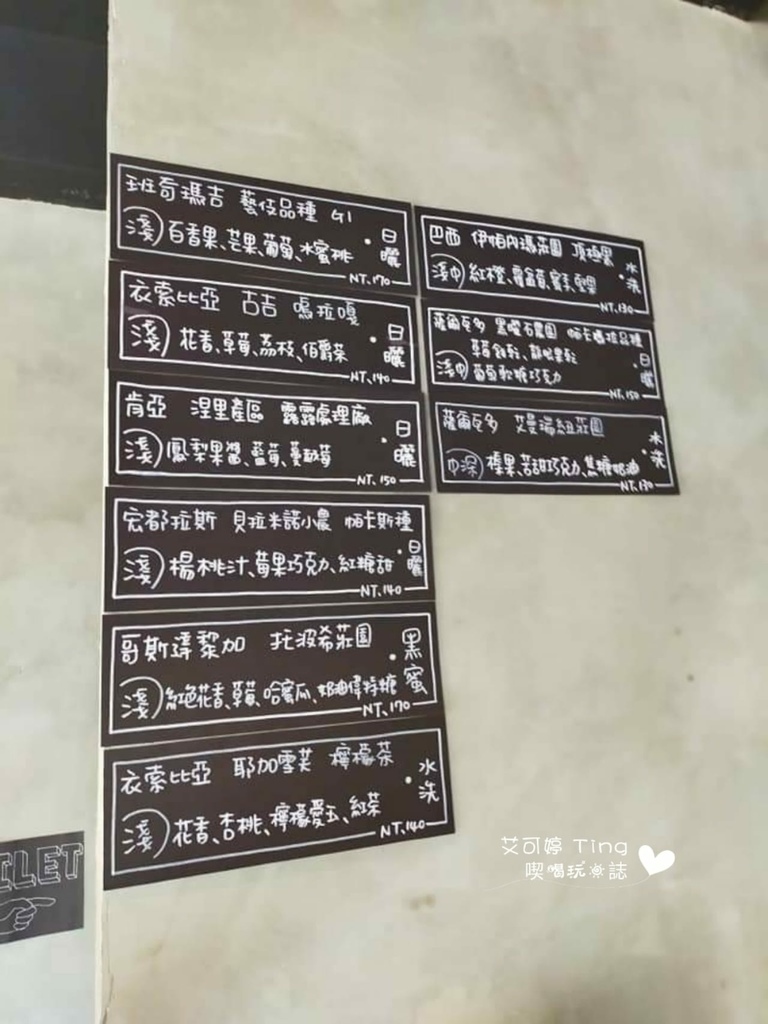 班奇瑪吉 藝伎品種 G1
・日曬
淺 百香果、芒果、葡萄、水蜜桃
NT.170
衣索比亞 古吉 嗚拉嘎
・日曬
淺 花香、草莓、荔枝、伯爵茶
NT.140
肯亞 涅里產區 露露處理廠
・日曬
淺 鳳梨果醬、藍莓、蔓越莓
NT.150
宏都拉斯 貝拉米諾小農 帕卡斯種
・日曬
淺 楊桃汁、莓果巧克力、紅糖甜
NT.140
哥斯達黎加 托波希莊園
・黑蜜
淺 紅色花香、草莓、哈蜜瓜、奶油偉特糖
NT.170
衣索比亞 耶加雪芙 檸檬茶
・水洗
淺 花香、杏桃、檸檬愛玉、紅茶
NT.140
巴西 伊帕內瑪莊園 頂極黑
・水洗
淺中 紅橙、蘿蔔、蜜棗、堅果
NT.130
薩爾瓦多 黑曜石農園 帕卡瑪拉品種
・日曬
草莓餅乾、
淺中 葡萄軟糖巧克力
NT.150
薩爾瓦多 艾曼瑙紐莊園
・水洗
中深 榛果、苦甜巧克力、焦糖奶油
NT.130
ILET
艾可婷 Ting
喫喝玩樂誌